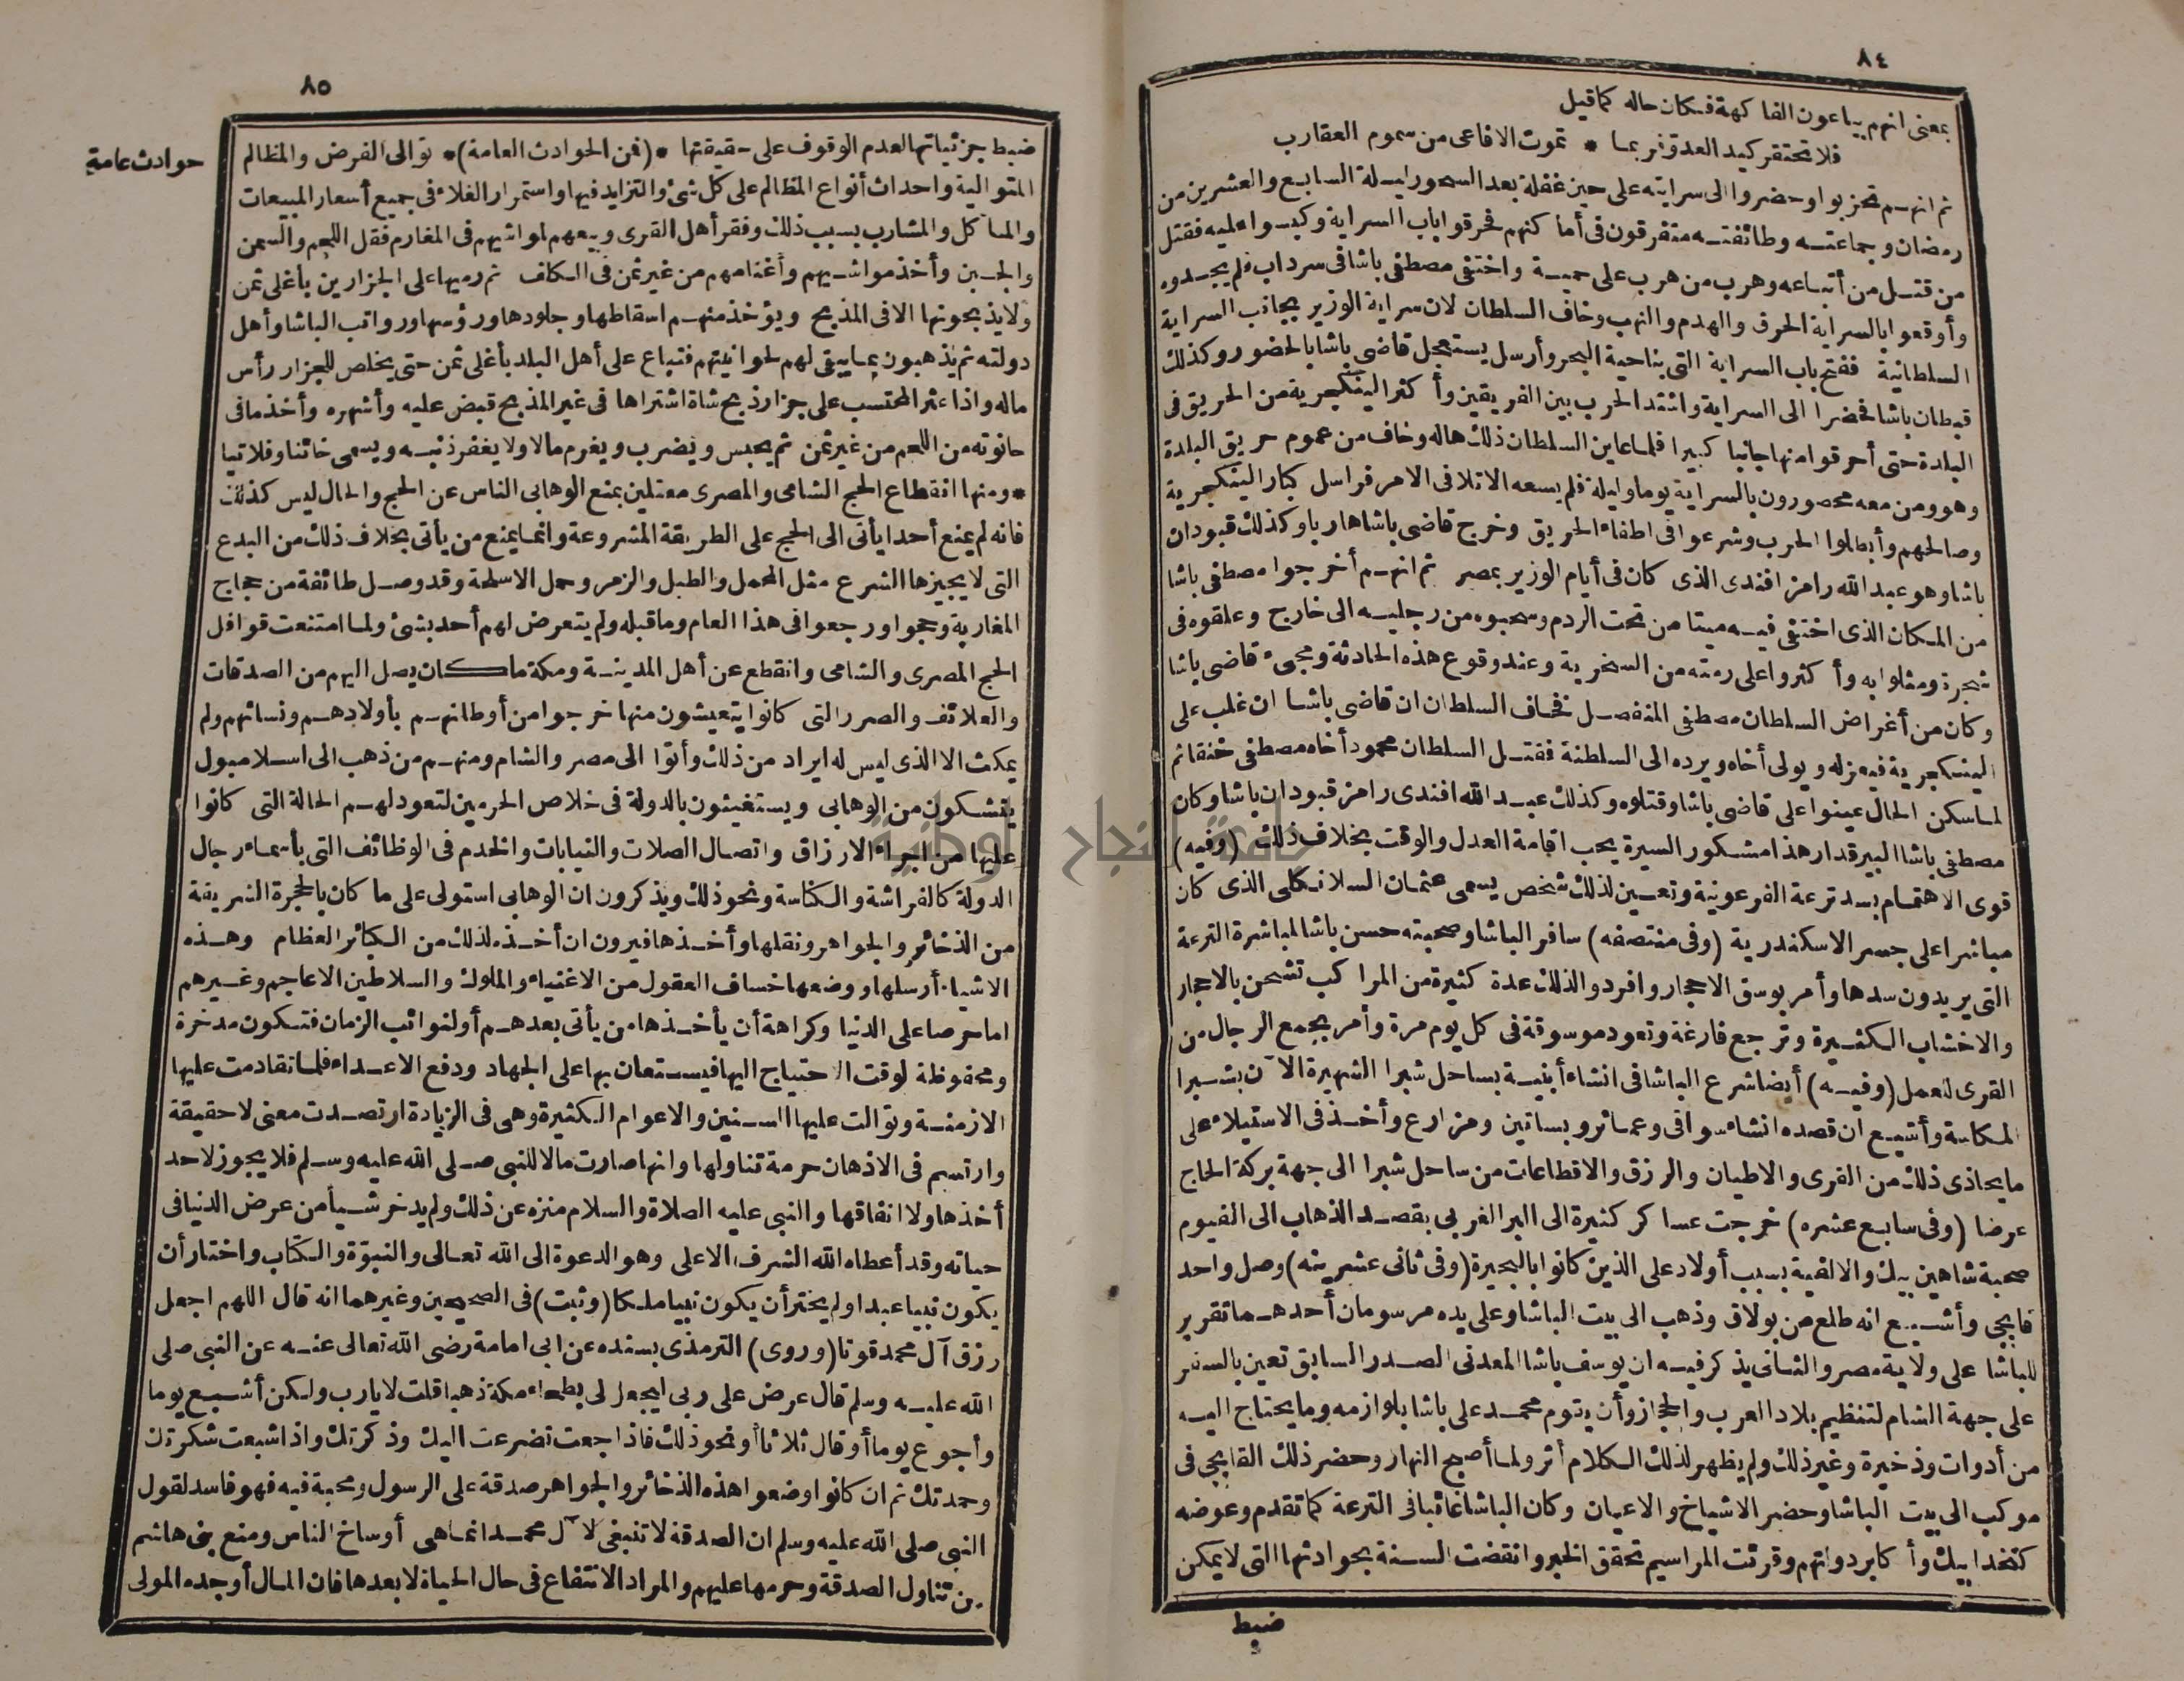 ٨٤
بمعنى انهم بياعون الفاكهة فكان حاله كما قيل
فلا تحتقر كيد العدو فربما * تموت الافاعى من سموم العقارب
ثم انهم تحزبوا وحضروا الى سرايته على حين غفلة بعد السحور ليلة السابع والعشرين من
رمضان وجماعته وطائفته متفرقون فى أماكنهم فحرقوا باب السراية وكبسوا عليه فقتل
من قتل من أتباعه وهرب من هرب على حمية واختفى مصطفى باشا فى سرداب فلم يجدوه
وأوقعوا بالسراية الحرق والهدم والنهب وخاف السلطان لان سراية الوزير بجانب السراية
السلطانية ففتح باب السراية التى بناحية البحر وأرسل يستعجل قاضى باشا بالحضور وكذلك
قبطان باشا فحضرا الى السراية واشتد الحرب بين الفريقين وأكثر الينكجرية من الحريق فى
البلدة حتى أحرقوا منها جانبا كبيرا فلما عاين السلطان ذلك هاله وخاف من عموم حريق البلدة
وهو ومن معه محصورون بالسراية يوما وليلة فلم يسعه الا تلافى الامر فراسل كبار الينكجرية
وصالحهم وأبطلوا الحرب وشرعوا فى اطفاء الحريق وخرج قاضى باشا هاربا وكذلك قبودان
باشا وهو عبد الله رامز افندى الذى كان فى أيام الوزير بمصر ثم انهم أخرجوا مصطفى باشا
من المكان الذى اختفى فيه ميتا من تحت الردم وسحبوه من رجليه الى خارج وعلقوه فى
شجرة ومثلوا به وأكثروا على رمته من السخرية وعند وقوع هذه الحادثة ومجىء قاضى باشا
وكان من أغراض السلطان مصطفى المنفصل فخاف السلطان ان قاضى باشا ان غلب على
الينكجرية فيعزله ويولى أخاه ويرده الى السلطنة فقتل السلطان محمود أخاه مصطفى خنقا ثم
لما سكن الحال عينوا على قاضى باشا وقتلوه وكذلك عبد الله افندى رامز قبودان باشا وكان
مصطفى باشا البيرقدار هذا مشكور السيرة يحب اقامة العدل والوقت بخلاف ذلك (وفيه)
قوى الاهتمام بسد ترعة الفرعونية وتعين لذلك شخص يسمى عثمان السلانكلى الذى كان
مباشرا على جسر الاسكندرية (وفى منتصفه) سافر الباشا وصحبته حسن باشا لمباشرة الترعة
التى يريدون سدها وأمر بوسق الاحجار وافردوا لذلك عدة كثيرة من المراكب تشحن بالاحجار
والاخشاب الكثيرة وترجع فارغة وتعود موسوقة فى كل يوم مرة وأمر بجمع الرجال من
القرى للعمل (وفيه) أيضا شرع الباشا فى انشاء أبنية بساحل شبرا الشهيرة الآن بشبرا
المكاسة وأشيع ان قصده انشاء سواقى وعمائر وبساتين ومزارع وأخذ فى الاستيلاء على
ما يحاذى ذلك من القرى والاطيان والرزق والاقطاعات من ساحل شبرا الى جهة بركة الحاج
عرضا (وفى سابع عشره) خرجت عساكر كثيرة الى البر الغربى بقصد الذهاب الى الفيوم
صحبة شاهين بيك والالفية بسبب أولاد على الذين كانوا بالبحيرة (وفى ثانى عشرينه) وصل واحد
قابجى وأشيع انه طلع من بولاق وذهب الى بيت الباشا وعلى يده مرسومان أحدهما تقرير
للباشا على ولاية مصر والثانى يذكر فيه ان يوسف باشا المعدنى الصدر السابق تعين بالسفر
على جهة الشام لتنظيم بلاد العرب والحجاز وأن يقوم محمد على باشا بلوازمه وما يحتاج اليه
من أدوات وذخيرة وغير ذلك ولم يظهر لذلك الكلام أثر ولما أصبح النهار وحضر ذلك القابجى فى
موكب الى بيت الباشا وحضر الاشياخ والاعيان وكان الباشا غائبا فى الترعة كما تقدم وعوضه
كتخدا بيك وأكابر دولتهم وقرئت المراسيم تحقق الخبر وانقضت السنة بحوادثها التى لا يمكن
ضبط
٨٥
حوادث عامة
ضبط جزئياتها لعدم الوقوف على حقيقتها *(فمن الحوادث العامة)* توالى الفرض والمظالم
المتوالية واحداث أنواع المظالم على كل شئ والتزايد فيها واستمرار الغلاء فى جميع أسعار المبيعات
والمآكل والمشارب بسبب ذلك وفقر أهل القرى وبيعهم لمواشيهم فى المغارم فقل اللحم والسمن
والجبن وأخذ مواشيهم وأغنامهم من غير ثمن فى الكاف ثم رميها على الجزارين بأغلى ثمن
ولا يذبحونها الا فى المذبح ويؤخذ منهم اسقاطها وجلودها ورؤسها ورواتب الباشا وأهل
دولته ثم يذهبون بما يبقى لهم لحوانيتهم فتباع على أهل البلد بأغلى ثمن حتى يخلص للجزار رأس
ماله واذا عثر المحتسب على جزار ذبح شاة اشتراها فى غير المذبح قبض عليه وأشهره وأخذ ما فى
حانوته من اللحم من غير ثمن ثم يحبس ويضرب ويغرم مالا ولا يغفر ذنبه ويسمى خائنا وفلاتيا
*ومنها انقطاع الحج الشامى والمصرى معتلين بمنع الوهابى الناس عن الحج والحال ليس كذلك
فانه لم يمنع أحدا يأتى الى الحج على الطريقة المشروعة وانما يمنع من يأتى بخلاف ذلك من البدع
التى لا يجيزها الشرع مثل المحمل والطبل والزمر وحمل الاسلحة وقد وصل طائفة من حجاج
المغاربة وحجوا ورجعوا فى هذا العام وما قبله ولم يتعرض لهم أحد بشئ ولما امتنعت قوافل
الحج المصرى والشامى وانقطع عن أهل المدينة ومكة ما كان يصل اليهم من الصدقات
والعلائف والصرر التى كانوا يتعيشون منها خرجوا من أوطانهم بأولادهم ونسائهم ولم
يمكث الا الذى ليس له ايراد من ذلك وأتوا الى مصر والشام ومنهم من ذهب الى اسلامبول
يتشكون من الوهابى ويستغيثون بالدولة فى خلاص الحرمين لتعود لهم الحالة التى كانوا
عليها من اجراء الارزاق واتصال الصلات والنيابات والخدم فى الوظائف التى بأسماء رجال
الدولة كالفراشة والكناسة ونحو ذلك ويذكرون ان الوهابى استولى على ما كان بالحجرة الشريفة
من الذخائر والجواهر ونقلها وأخذها فيرون ان أخذه لذلك من الكبائر العظام وهذه
الاشياء أرسلها ووضعها خساف العقول من الاغنياء والملوك والسلاطين الاعاجم وغيرهم
اما حرصا على الدنيا وكراهة أن يأخذها من يأتى بعدهم أو لنوائب الزمان فتكون مدخرة
ومحفوظة لوقت الاحتياج اليها فيستعان بها على الجهاد ودفع الاعداء فلما تقادمت عليها
الازمنة وتوالت عليها السنين والاعوام الكثيرة وهى فى الزيادة ارتصدت معنى لا حقيقة
وارتسم فى الاذهان حرمة تناولها وانها صارت مالا للنبى صلى الله عليه وسلم فلا يجوز لاحد
أخذها ولا انفاقها والنبى عليه الصلاة والسلام منزه عن ذلك ولم يدخر شيأ من عرض الدنيا فى
حياته وقد أعطاه الله الشرف الاعلى وهو الدعوة الى الله تعالى والنبوّة والكتاب واختار أن
يكون نبيا عبدا ولم يختر أن يكون نبيا ملكا (وثبت) فى الصحيحين وغيرهما انه قال اللهم اجعل
رزق آل محمد قوتا (وروى) الترمذى بسنده عن ابى امامة رضى الله تعالى عنه عن النبى صلى
الله عليه وسلم قال عرض على ربى ليجعل لى بطحاء مكة ذهبا قلت لا يارب ولكن أشبع يوما
وأجوع يوما أو قال ثلاثا أو نحو ذلك فاذا جعت تضرعت اليك وذكرتك واذا شبعت شكرتك
وحمدتك ثم ان كانوا وضعوا هذه الذخائر والجواهر صدقة على الرسول ومحبة فيه فهو فاسد لقول
النبى صلى الله عليه وسلم ان الصدقة لا تنبغى لآل محمد انما هى أوساخ الناس ومنع بنى هاشم
من تناول الصدقة وحرمها عليهم والمراد الانتفاع فى حال الحياة لا بعدها فان المال أوجده المولى
جامعة النجاح الوطنية